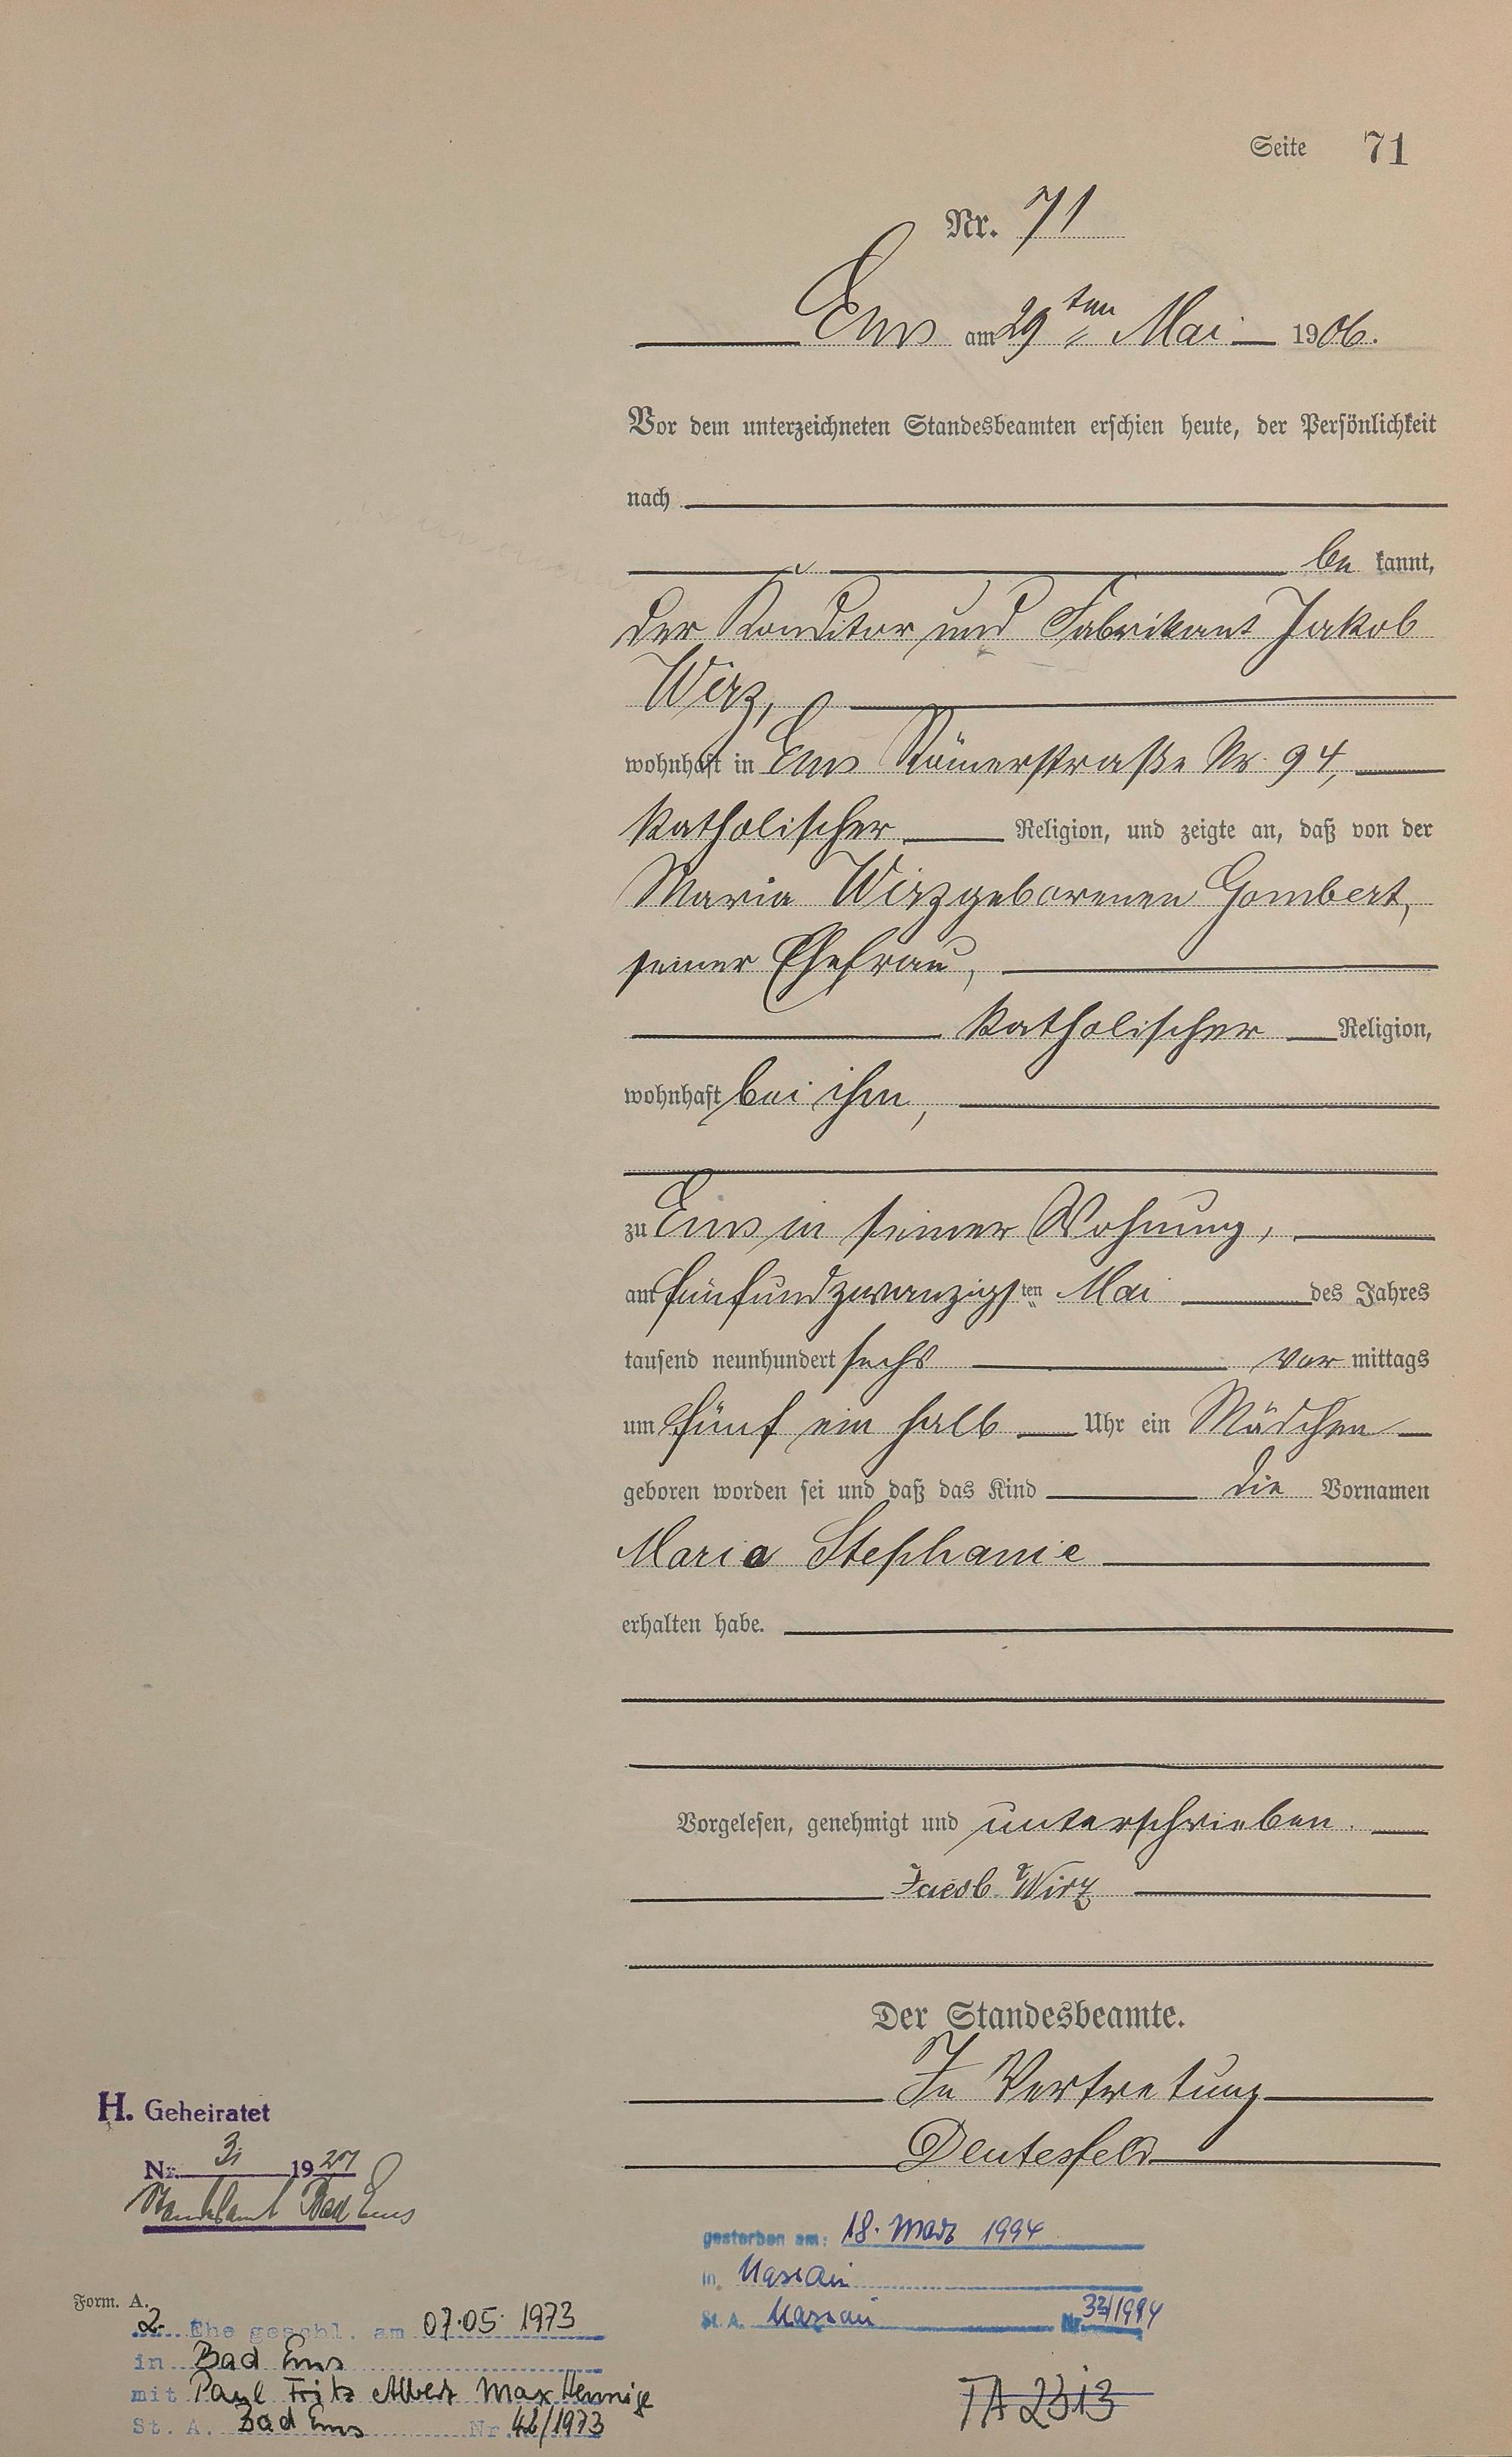 Seite 71
Nr. 71
Ems am 29ten Mai 1906.
Vor dem unterzeichneten Standesbeamten erschien heute, der Persönlichkeit
nach
be kannt,
der Konditor und Fabrikant Jakob
Wirz,
wohnhaft in Ems Römerstraße Nr. 94,
katholischer Religion, und zeigte an, daß von der
Maria Wirz geborenen Gombert,
seiner Ehefrau,
katholischer Religion,
wohnhaft bei ihm,
zu Ems in seiner Wohnung,
am fünfundzwanzigsten Mai des Jahres
tausend neunhundert sechs vor mittags
um fünf ein halb Uhr ein Mädchen
geboren worden sei und daß das Kind die Vornamen
Maria Stephanie
erhalten habe.
Vorgelesen, genehmigt und unterschrieben.
Jacob Wirz
Der Standesbeamte.
In Vertretung
Deutesfeld
H. Geheiratet
Nr. 19
Standesamt Bad Ems
gestorben am: 18. März 1994
in Nassau
St. A. Nassau Nr. 33/1994
Form. A.
2. Ehe geschl. am 07.05.1973
in Bad Ems
mit Paul Fritz Albert Max Hennige
St. A. Bad Ems Nr. /1973
TA 2313